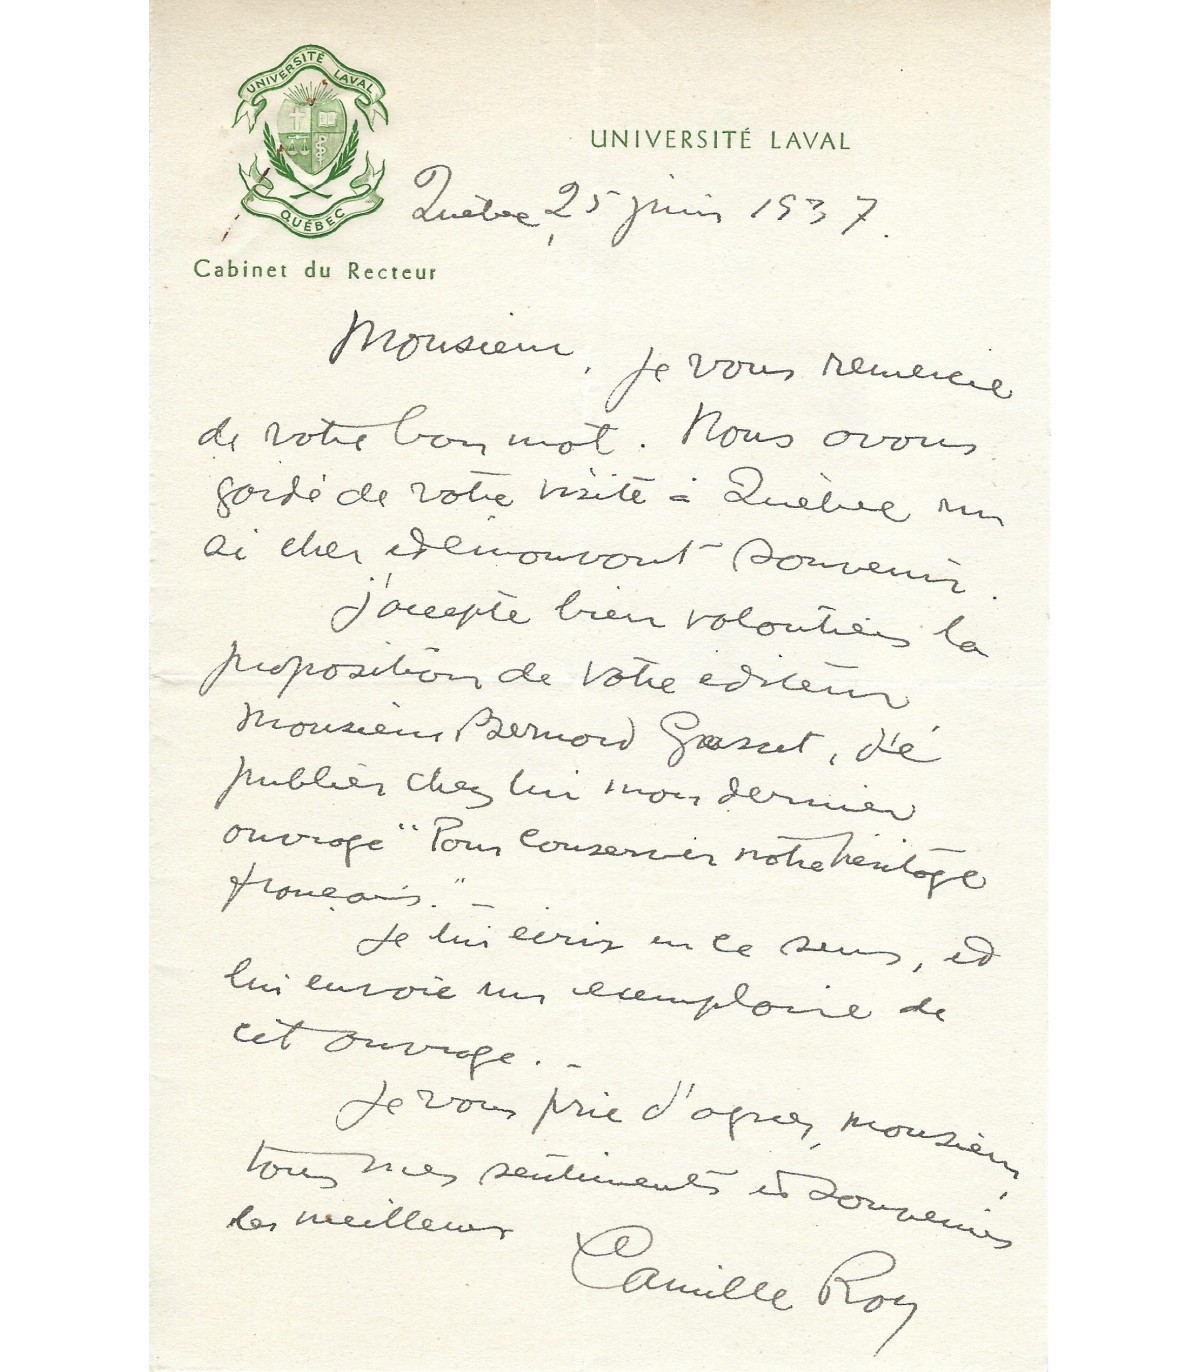 UNIVERSITÉ LAVAL
QUÉBEC
UNIVERSITÉ LAVAL
Québec, 25 juin 1937.
Cabinet du Recteur
Monsieur, je vous remercie
de votre bon mot. Nous avons
gardé de votre visite à Québec un
si cher et émouvant souvenir.
J'accepte bien volontiers la
proposition de votre éditeur,
Monsieur Bernard Grasset, de
publier chez lui mon dernier
ouvrage "Pour conserver notre héritage
français." –
Je lui écris en ce sens, et
lui envoie un exemplaire de
cet ouvrage. –
Je vous prie d'agréer, monsieur,
tous mes sentiments et souvenirs
les meilleurs
Camille Roy